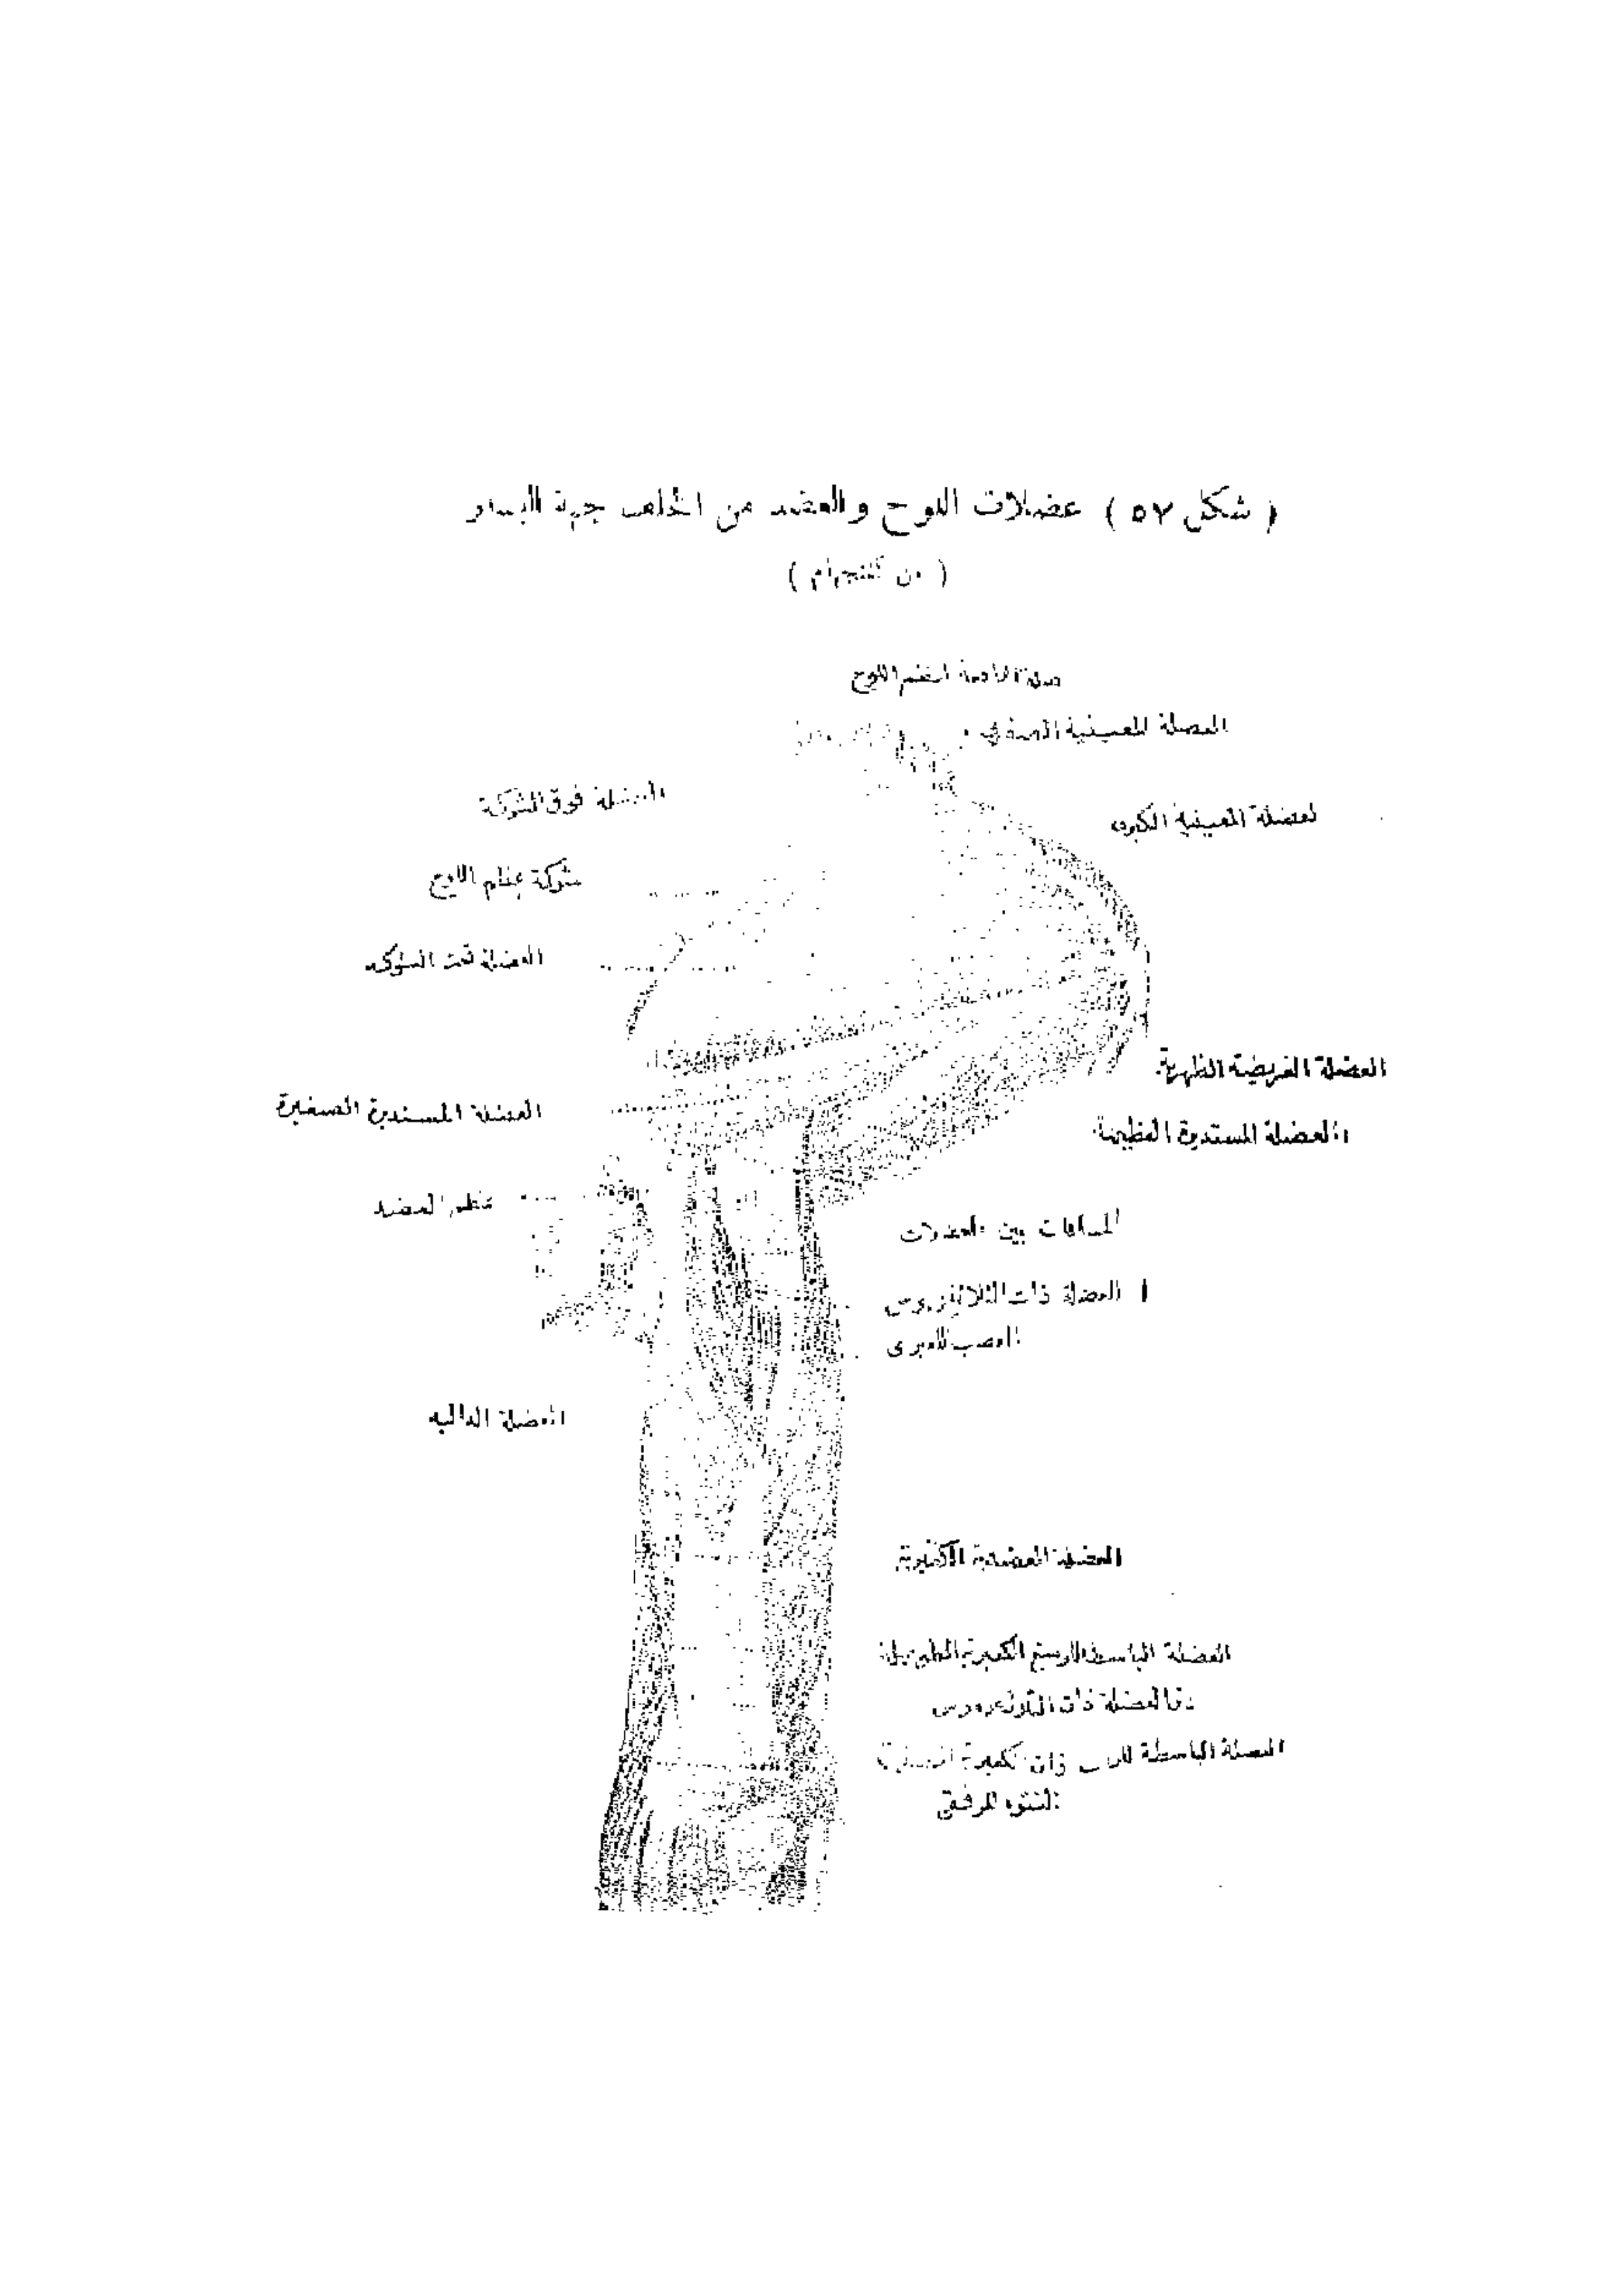 ( شكل ٥٧ ) عضلات اللوح والعضد من الخلف جهة اليسار
( من كننجهام )
العضلة الرافعة لعظم اللوح
العضلة المعينية الصغرى
العضلة فوق الشوكة
العضلة المعينية الكبرى
شوكة عظم اللوح
العضلة تحت الشوكة
العضلة العريضة الظهرية
العضلة المستديرة الصغيرة
العضلة المستديرة العظيمة
عظم العضد
المسافات بين العضلات
العضلة ذات الثلاثة رءوس
العصب الكعبرى
العضلة الدالية
العضلة العضدية الكعبرية
العضلة الباسطة للرسغ الكعبرية الطويلة
العضلة ذات الثلاثة رءوس
العضلة الباسطة
النتوء المرفقى